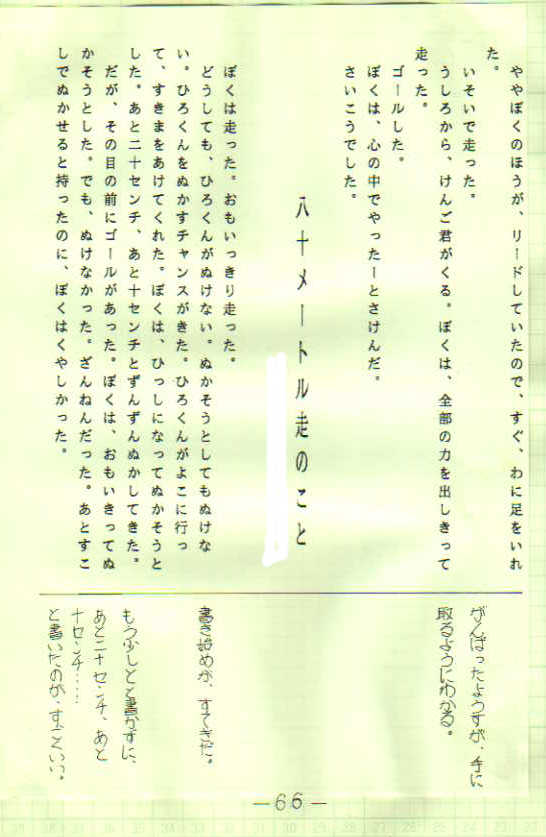 ややぼくのほうが、リードしていたので、すぐ、わに足をいれ
た。
いそいで走った。
うしろから、けんご君がくる。ぼくは、全部の力を出しきって
走った。
ゴールした。
ぼくは、心の中でやったーとさけんだ。
さいこうでした。
八十メートル走のこと
ぼくは走った。おもいっきり走った。
どうしても、ひろくんがぬけない。ぬかそうとしてもぬけな
い。ひろくんをぬかすチャンスがきた。ひろくんがよこに行っ
て、すきまをあけてくれた。ぼくは、ひっしになってぬかそうと
した。あと二十センチ、あと十センチとずんずんぬかしてきた。
だが、その目の前にゴールがあった。ぼくは、おもいきってぬ
かそうとした。でも、ぬけなかった。ざんねんだった。あとすこ
しでぬかせると持ったのに、ぼくはくやしかった。
がんばったようすが、手に
取るようにわかる。
書き始めが、すてきだ。
もう少しとと書かずに、
あと二十センチ、あと
十センチ……
と書いたのが、すごくいい。
―66―